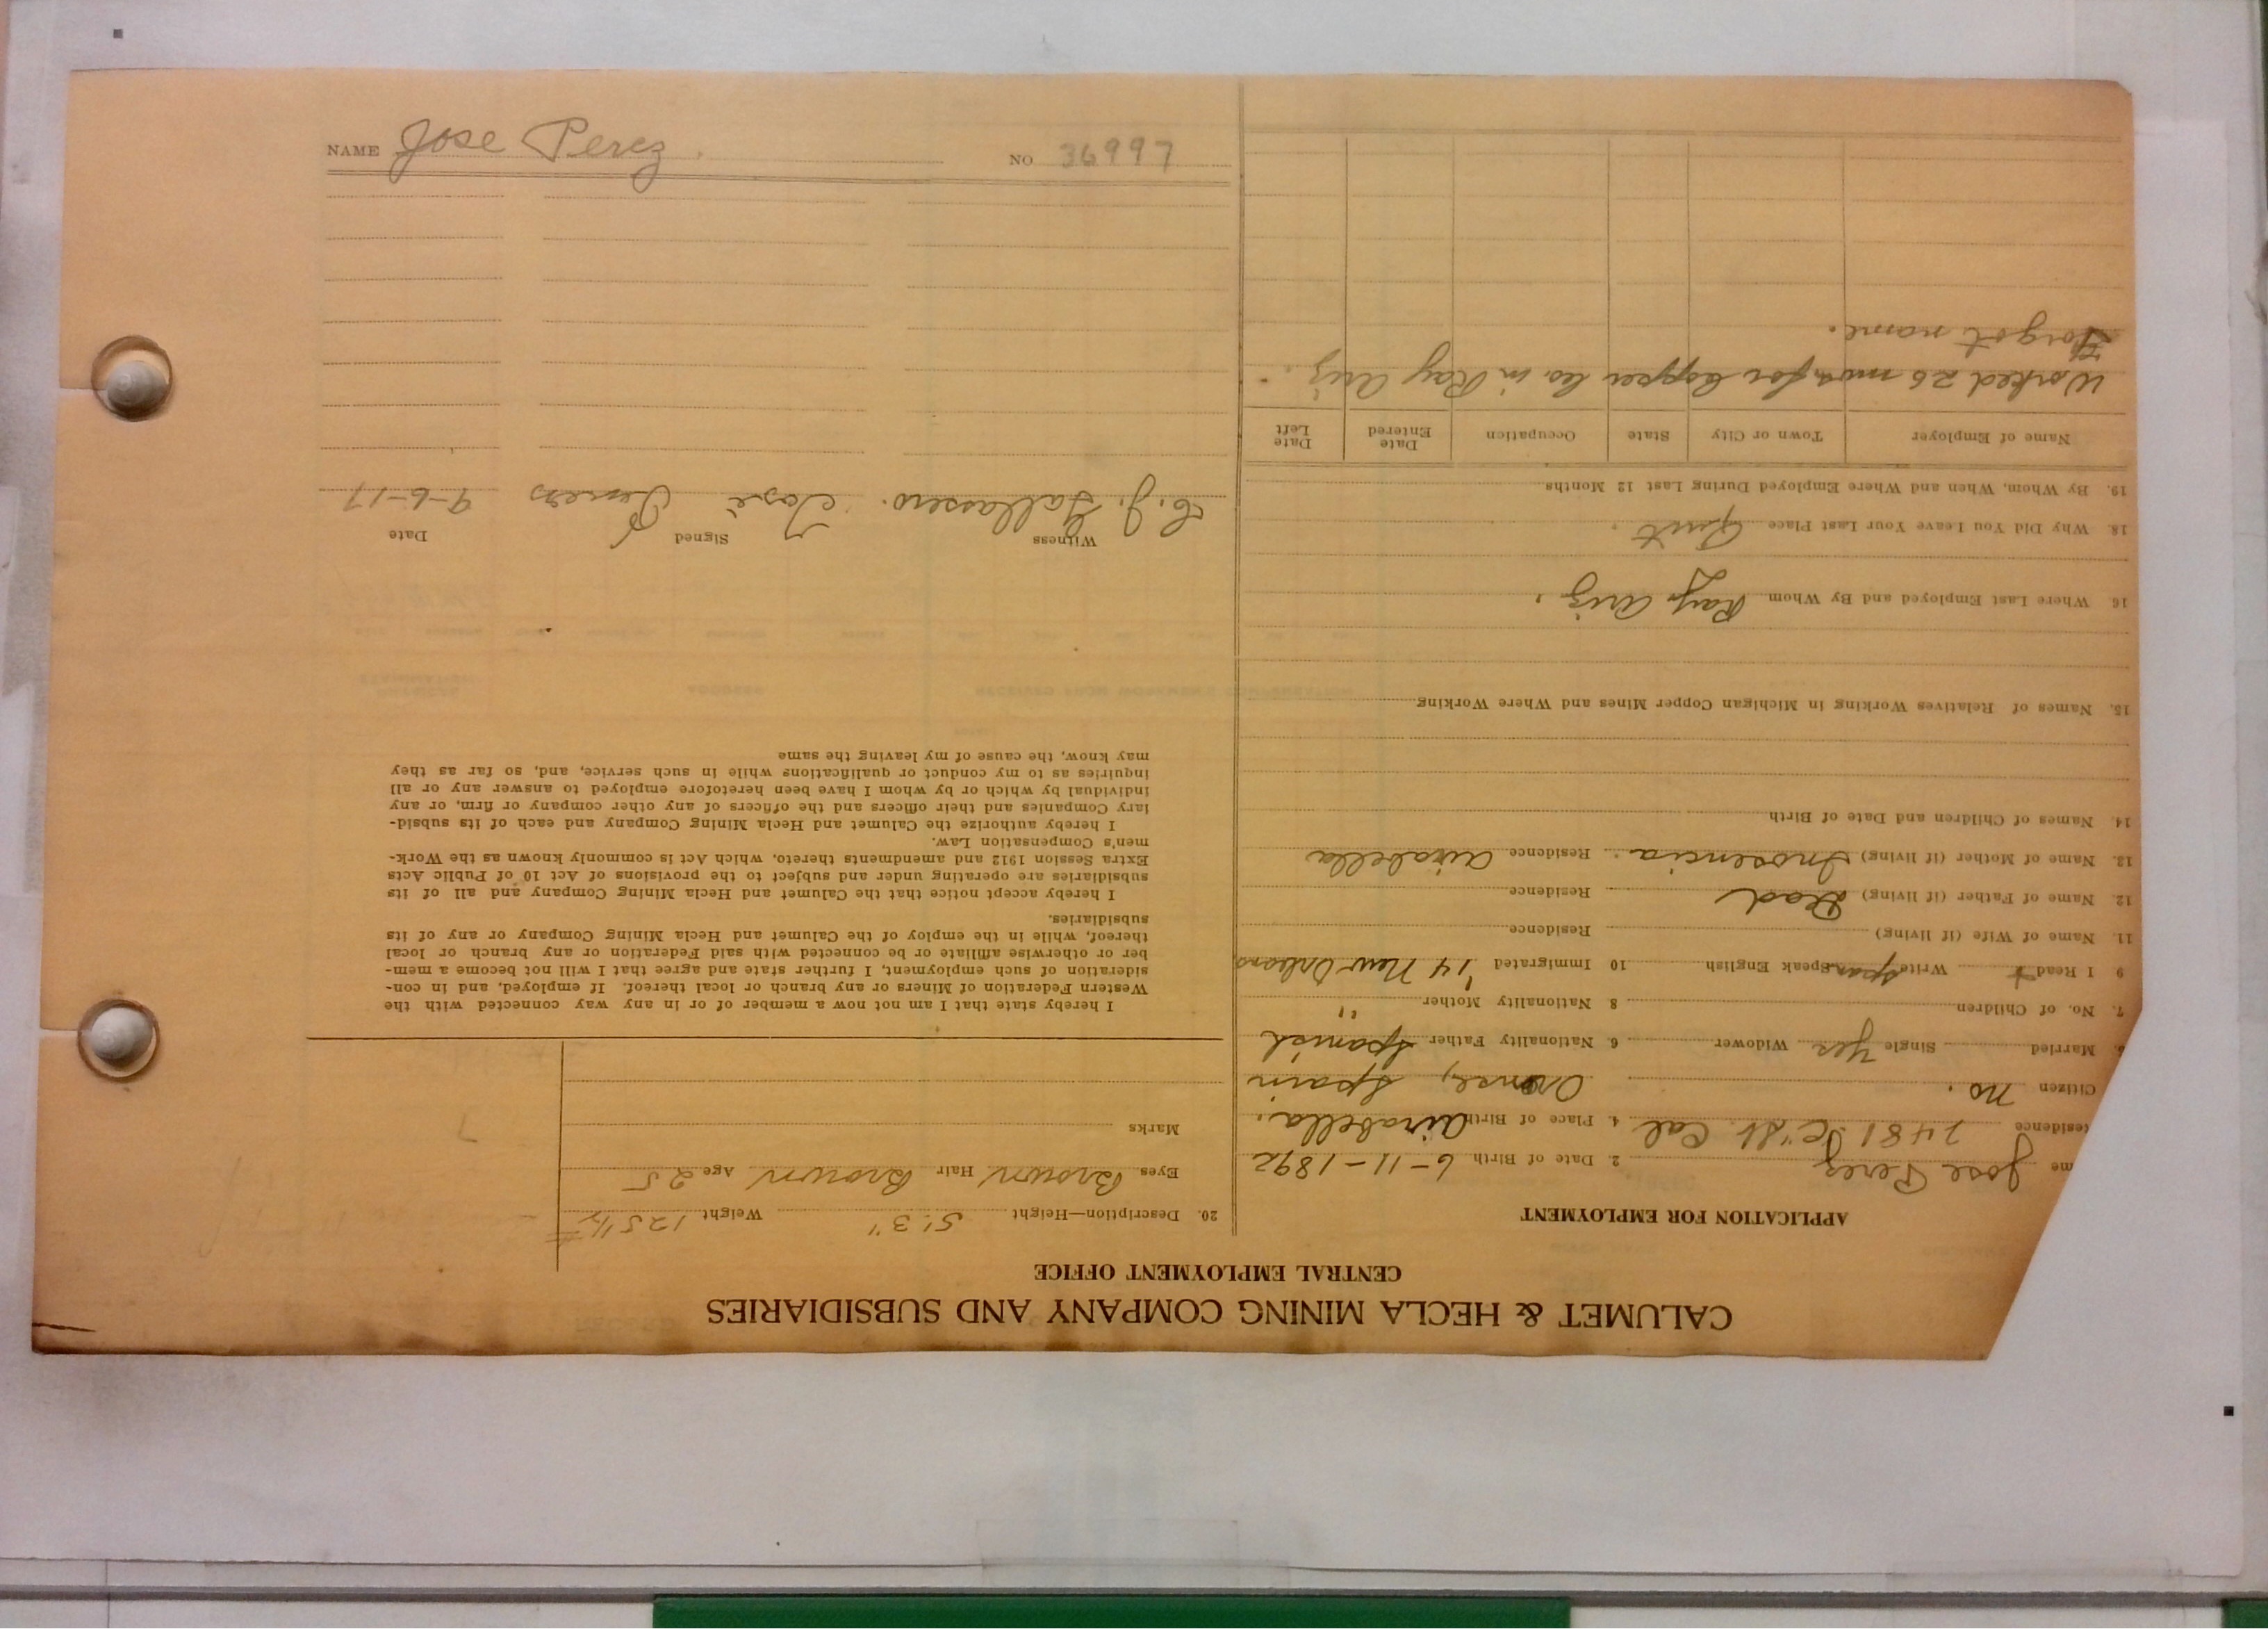 CALUMET & HECLA MINING COMPANY AND SUBSIDIARIES
CENTRAL EMPLOYMENT OFFICE
APPLICATION FOR EMPLOYMENT
me Jose Perez 2. Date of Birth 6-11-1892
Residence 2481 "C" St. Cal 4. Place of Birth Airabella,
Citizen no. Orense, Spain
Married Single Yes Widower 6. Nationality Father Spanish
7. No. of Children 8 Nationality Mother "
9 I Read Write Span Speak English 10 Immigrated '14 New Orleans
11. Name of Wife (if living) Residence
12. Name of Father (if living) Dead Residence
13. Name of Mother (if living) Inosencia. Residence Airabella
14. Names of Children and Date of Birth
15. Names of Relatives Working in Michigan Copper Mines and Where Working
16. Where Last Employed and By Whom Ray, Ariz.
18. Why Did You Leave Your Last Place Quit.
19. By Whom, When and Where Employed During Last 12 Months
Name of Employer Town or City State Occupation Date Entered Date Left
Worked 26 mos for Copper Co. in Ray Ariz.
Forgot name.
20. Description—Height 5' 3" Weight 125 1/2
Eyes Brown Hair Brown Age 25
Marks
I hereby state that I am not now a member of or in any way connected with the
Western Federation of Miners or any branch or local thereof. If employed, and in con-
sideration of such employment, I further state and agree that I will not become a mem-
ber or otherwise affiliate or be connected with said Federation or any branch or local
thereof, while in the employ of the Calumet and Hecla Mining Company or any of its
subsidiaries.
I hereby accept notice that the Calumet and Hecla Mining Company and all of its
subsidiaries are operating under and subject to the provisions of Act 10 of Public Acts
Extra Session 1912 and amendments thereto, which Act is commonly known as the Work-
men's Compensation Law.
I hereby authorize the Calumet and Hecla Mining Company and each of its subsid-
iary Companies and their officers and the officers of any other company or firm, or any
individual by which or by whom I have been heretofore employed to answer any or all
inquiries as to my conduct or qualifications while in such service, and, so far as they
may know, the cause of my leaving the same
Witness Signed Date
José 9-6-17
NAME Jose Perez. NO 36997